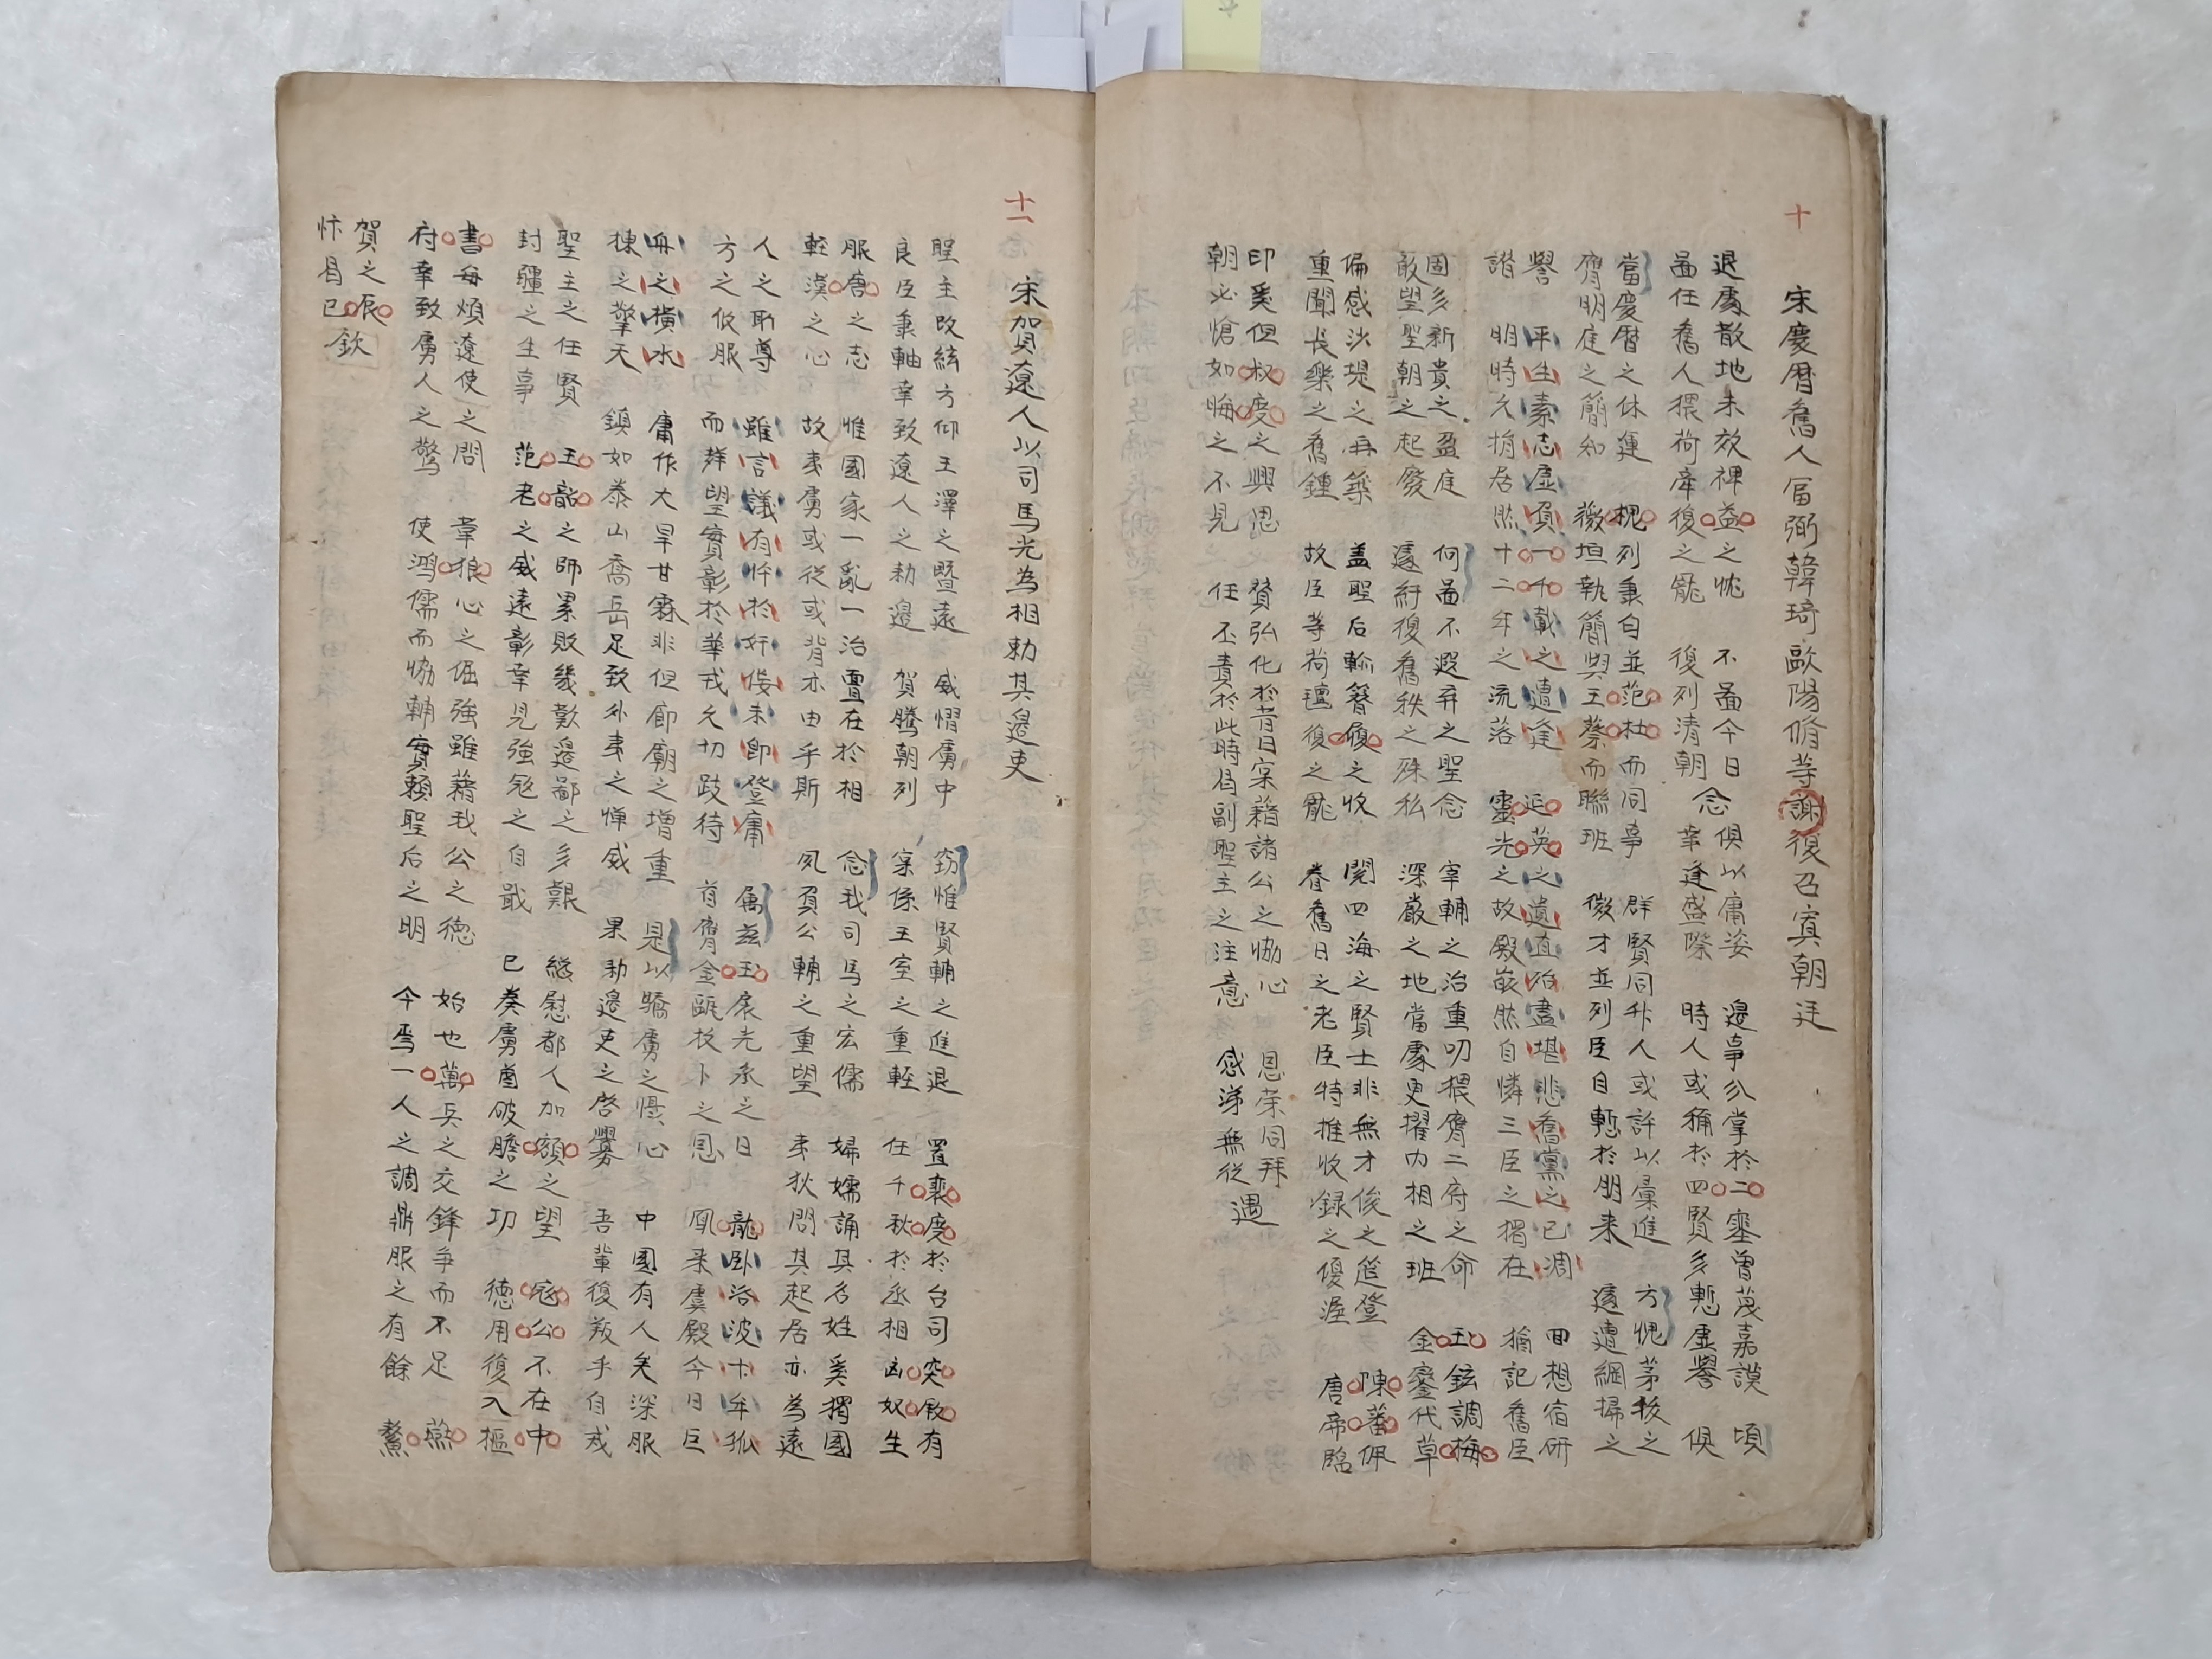 十
宋慶曆舊人富弼韓琦歐陽脩等謝復召寘朝廷
退處散地未效裨益之忱 不啚今日 俱以庸姿 邊事分掌於二塞曾蔑嘉謨 頃
啚任舊人猥荷牽復之寵 復列清朝 念 幸逢盛際 時人或稱於四賢多慙虛譽 俱
當慶曆之休運 槐列秉勻並范杜而同事 群賢同升人或許以彙進 方愧茅拔之
膺明庭之簡知 薇垣執簡與王蔡而聯班 微才並列臣自慙於朋来 遽遭網掃之
譽 平生素志虛負一千載之遭逢 延英之遺直殆盡堪悲舊黨之已凋 回想宿硏
譖 明時久捐居然十二年之流落 靈光之故殿巋然自憐三臣之獨在 猶記舊臣
固多新貴之盈庭 何啚不遐弃之聖念 宰輔之治重叨猥膺二府之命 玉鉉調梅
敢望聖朝之起廢 遽紆復舊秩之殊私 深嚴之地當處更擢內相之班 金鑾代草
偏感沙堤之再築 盖聖后軫簪履之收 閱四海之賢士非無才俊之莚登 陳蕃佩
重聞長樂之舊鍾 故臣等荷氊復之寵 眷舊日之老臣特推收録之優渥 唐帝臨
印奚但叔度之興思 贊弘化於昔日寀藉諸公之恊心 恩荣同拜
朝必愴如晦之不見 任丕責於此時曷副聖主之注意 感涕無從 遇
十一
宋賀遼人以司馬光為相勑其邊吏
聖主改絃方仰王澤之曁遠 威慴虜中 窃惟賢輔之進退 置裴度於台司突厥有
良臣秉軸幸致遼人之勑邊 賀騰朝列 寀係王室之重輕 任千秋於丞相凶奴生
服唐之志 惟國家一亂一治亶在於相 念我司馬之宏儒 婦孺誦其名姓奚獨國
輕漢之心 故夷虜或從或背亦由乎斯 夙負公輔之重望 夷狄問其起居亦為遠
人之所尊 雖言議有忤於奸佞未卽登庸 属玆玉扆光承之日 龍卧洛波十年孤
方之攸服 而羣望實彰於華戎久切跂待 首膺金甌枚卜之恩 鳳来虞殿今日巨
舟之橫水 庸作大旱甘霖非但廊廟之增重 是以驕虜之慢心 中國有人矣深服
棟之擎天 鎮如泰山喬岳足致外夷之憚威 果勑邊吏之啓釁 吾輩復叛乎自戒
聖主之任賢 王韶之師累敗幾歎邊鄙之多艱 緫慰都人加額之望 寇公不在中
封疆之生事 范老之威遠彰幸見強寇之自戢 已奏虜酋破膽之功 徳用復入樞
書每煩遼使之問 幸狼心之倔強雖藉我公之徳 始也萬兵之交鋒爭而不足 燕
府幸致虜人之驚 使鴻儒而恊輔實頼聖后之明 今焉一人之調鼎服之有餘 鰲
賀之辰
忭曷已 欽